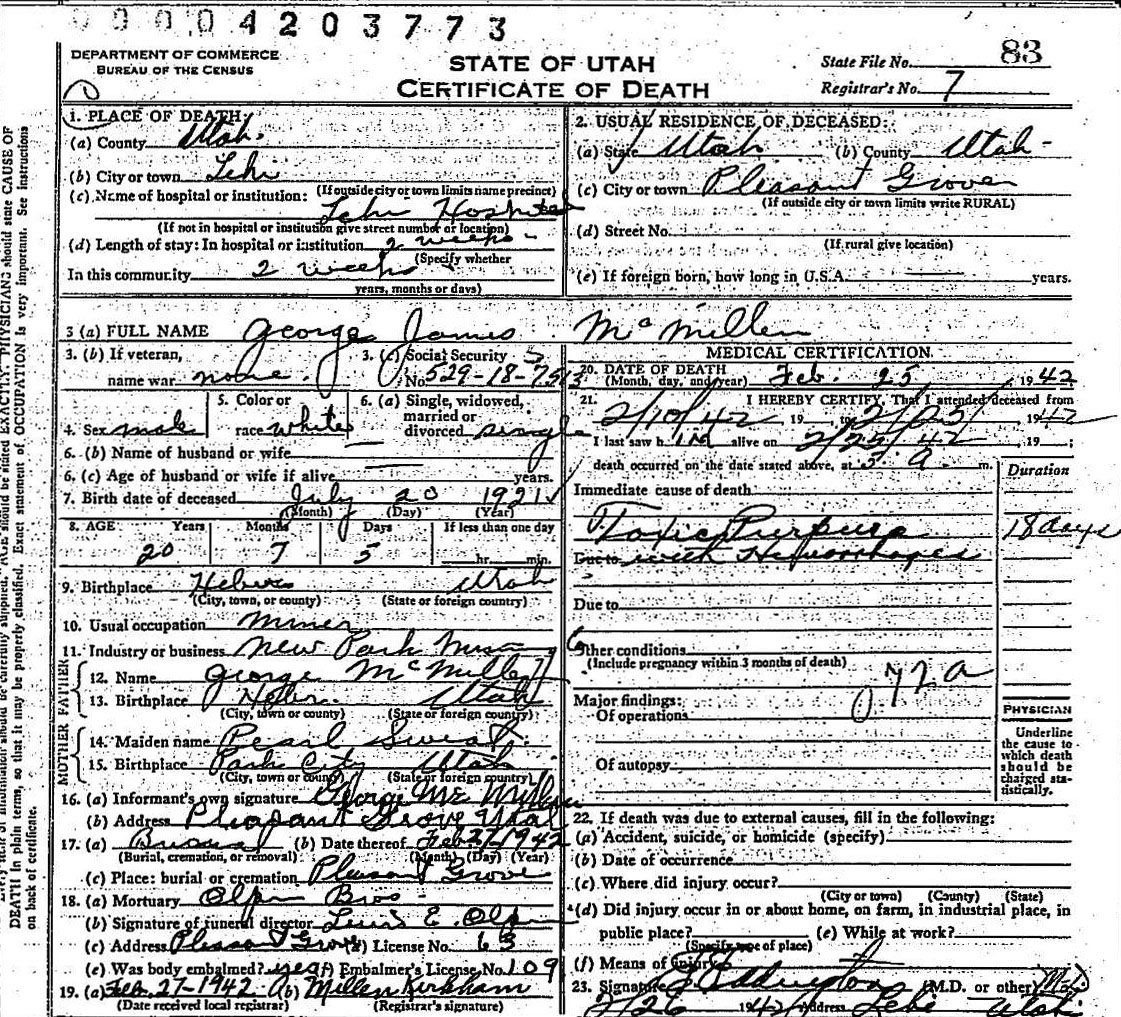 0 0 0 0 4 2 0 3 7 7 3
DEPARTMENT OF COMMERCE
BUREAU OF THE CENSUS
STATE OF UTAH
CERTIFICATE OF DEATH
State File No. 83
Registrar's No. 7
1. PLACE OF DEATH:
(a) County Utah.
(b) City or town Lehi
(If outside city or town limits name precinct)
(c) Name of hospital or institution: Lehi Hospital
(If not in hospital or institution give street number or location)
(d) Length of stay: In hospital or institution 2 weeks
(Specify whether
In this community 2 weeks
years, months or days)
2. USUAL RESIDENCE OF DECEASED:
(a) State Utah (b) County Utah
(c) City or town Pleasant Grove
(If outside city or town limits write RURAL)
(d) Street No.
(If rural give location)
(e) If foreign born, how long in U.S.A. years.
3 (a) FULL NAME George James McMillen
3. (b) If veteran,
name war none.
3. (c) Social Security
No. 529-18-75
5. Color or
race white
6. (a) Single, widowed,
married or
divorced single
4. Sex male
6. (b) Name of husband or wife
6. (c) Age of husband or wife if alive years.
7. Birth date of deceased July 20 1921
(Month) (Day) (Year)
8. AGE Years Months Days If less than one day
20 7 5 hr. min.
9. Birthplace Heber Utah
(City, town, or county) (State or foreign country)
10. Usual occupation miner
11. Industry or business New Park
FATHER
12. Name George McMillen
13. Birthplace Heber Utah
(City, town or county) (State or foreign country)
MOTHER
14. Maiden name Pearl Sweat.
15. Birthplace Park City Utah
(City, town or county) (State or foreign country)
16. (a) Informant's own signature George Mc Millen
(b) Address Pleasant Grove Utah
17. (a) Burial (b) Date thereof Feb 27 1942
(Burial, cremation, or removal) (Month) (Day) (Year)
(c) Place: burial or cremation Pleasant Grove
18. (a) Mortuary Olpin Bros
(b) Signature of funeral director E. Olpin
(c) Address Pleasant Grove (d) License No. 63
(e) Was body embalmed? yes (f) Embalmer's License No. 109
19. (a) Feb. 27-1942 (b) Millen Kirkham
(Date received local registrar) (Registrar's signature)
MEDICAL CERTIFICATION
20. DATE OF DEATH
(Month, day, and year) Feb. 25 1942
21. I HEREBY CERTIFY, That I attended deceased from
2/10/42 19 to 2/25/ 1942
I last saw him alive on 2/25/42, 19 ;
death occurred on the date stated above, at 5 a. m.
Duration
Immediate cause of death
Toxic Purpura 18 days
Due to with Hemorrhages
Due to
Other conditions
(Include pregnancy within 3 months of death)
72a
Major findings:
Of operations
Of autopsy
PHYSICIAN
Underline
the cause to
which death
should be
charged sta-
tistically.
22. If death was due to external causes, fill in the following:
(a) Accident, suicide, or homicide (specify)
(b) Date of occurrence
(c) Where did injury occur?
(City or town) (County) (State)
(d) Did injury occur in or about home, on farm, in industrial place, in
public place? (e) While at work?
(Specify type of place)
(f) Means of injury
23. Signature Eddington (M.D. or other) M.D.
2/26 1942 Address Lehi Utah
DEATH in plain terms, so that it may be properly classified. Exact statement of OCCUPATION is very important. See instructions
on back of certificate.